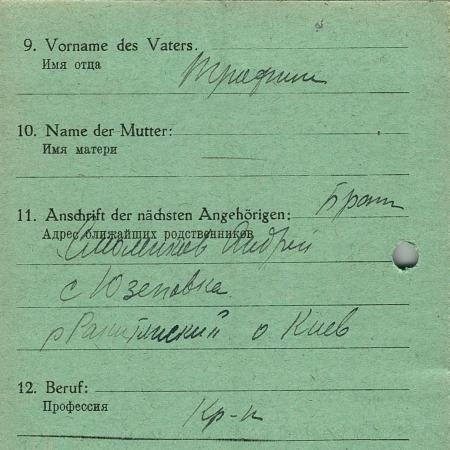 9. Vorname des Vaters.
Имя отца
Трафим
10. Name der Mutter:
Имя матери
—
11. Anschrift der nächsten Angehörigen: Брат
Адрес ближайших родственников
Андрей
с Юзеповка
р Ракитянский о Киев
12. Beruf:
Профессия
Кр-н